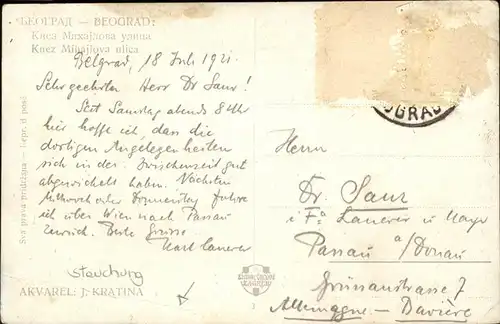 БЕОГРАД — BEOGRAD:
Кнез Михајлова улица
Knez Mihajlova ulica
Belgrad, 18 Juli 192
Sehr geehrter Herr Dr Saur!
Seit Samstag abends 8 Uhr
hier hoffe ich, dass die
dortigen Angelegenheiten
sich in der Zwischenzeit gut
abgewickelt haben. Nächsten
Mittwoch oder Donnerstag fahre
ich über Wien nach Passau
zurück. Beste Grüsse
Karl Lanerer
Sva prava pridržana — Repr. d. posé
stauchung
AKVAREL: J. KRATINA
OGRAD
Herrn
Dr. Saur
i. Fa Lanerer u Mayr
Passau a/Donau
Grünaustrasse 7
Allemagne - Bavière